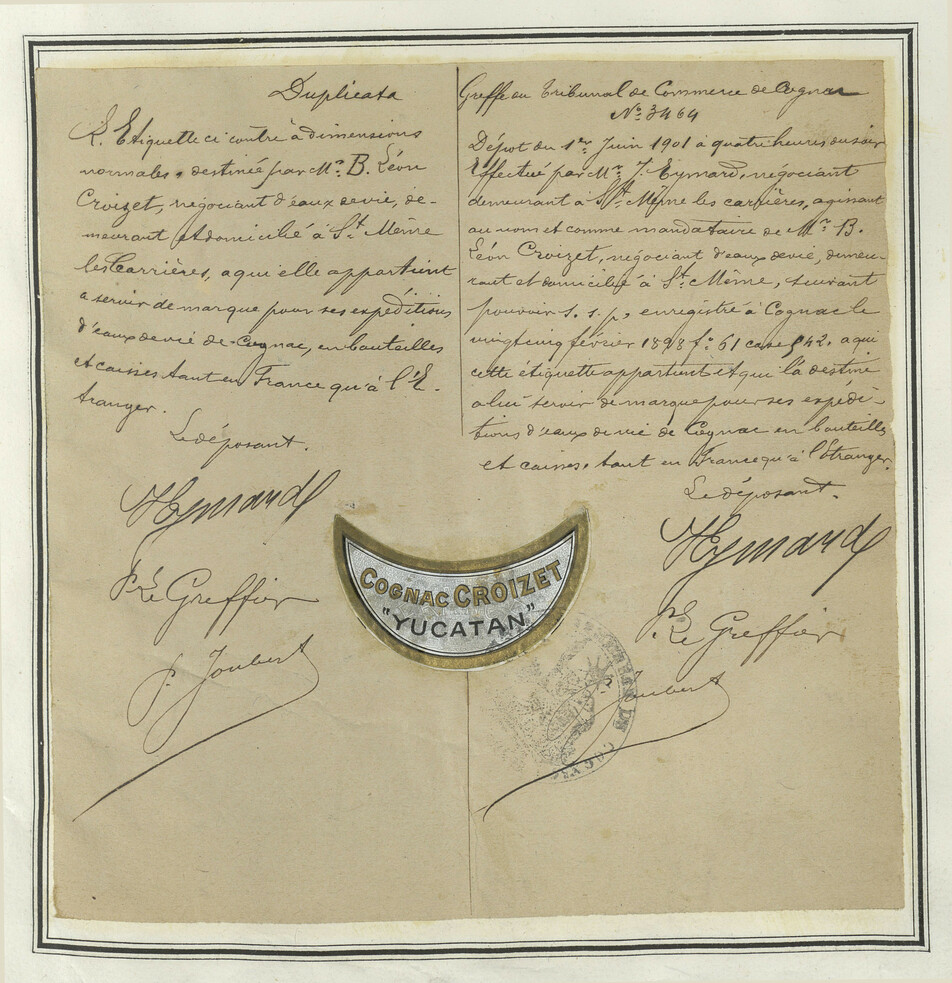 Duplicata
L'Etiquette ci contre à dimensions
normales, destinée par Mr. B. Léon
Croizet, négociant d'eaux de vie, de-
meurant et domicilié à St. Même
les Carrières, a qui elle appartient
a servir de marque pour ses expéditions
d'eaux de vie de Cognac, en bouteilles
et caisses tant en France qu'à l'E-
tranger.
Le déposant.
JEymard
Pr Le Greffier
P. Joubert
Greffe du Tribunal de Commerce de Cognac
No. 3464
Dépot du 1er Juin 1901 à quatre heures du soir
Effectué par Mr. J. Eymard, négociant
demeurant à St. Même les carrières, agissant
au nom et comme mandataire de Mr. B.
Léon Croizet, négociant d'eaux de vie, demeu-
rant et domicilié à St. Même, suivant
pouvoir s. s. p, enregistré à Cognac le
vingt cinq février 1898 fo. 61 case 542. a qui
cette étiquette appartient et qui la destine
a lui servir de marque pour ses expédi-
tions d'eaux de vie de Cognac en bouteilles
et caisses, tant en France qu'à l'Etranger.
Le déposant.
JEymard
Pr Le Greffier
P. Joubert
COGNAC CROIZET
"YUCATAN"